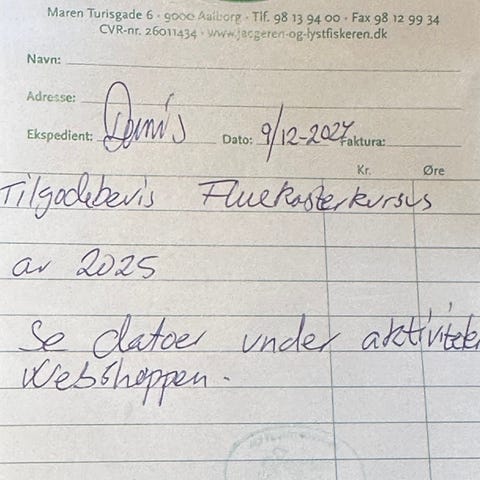 Maren Turisgade 6 · 9000 Aalborg · Tlf. 98 13 94 00 · Fax 98 12 99 34
CVR-nr. 26011434 · www.jaegeren-og-lystfiskeren.dk
Navn:
Adresse:
Ekspedient: Dennis Dato: 9/12-2024 Faktura:
Kr. Øre
Tilgodebevis Fluekasterkursus
av 2025
Se datoer under aktiviteter
Webshoppen.